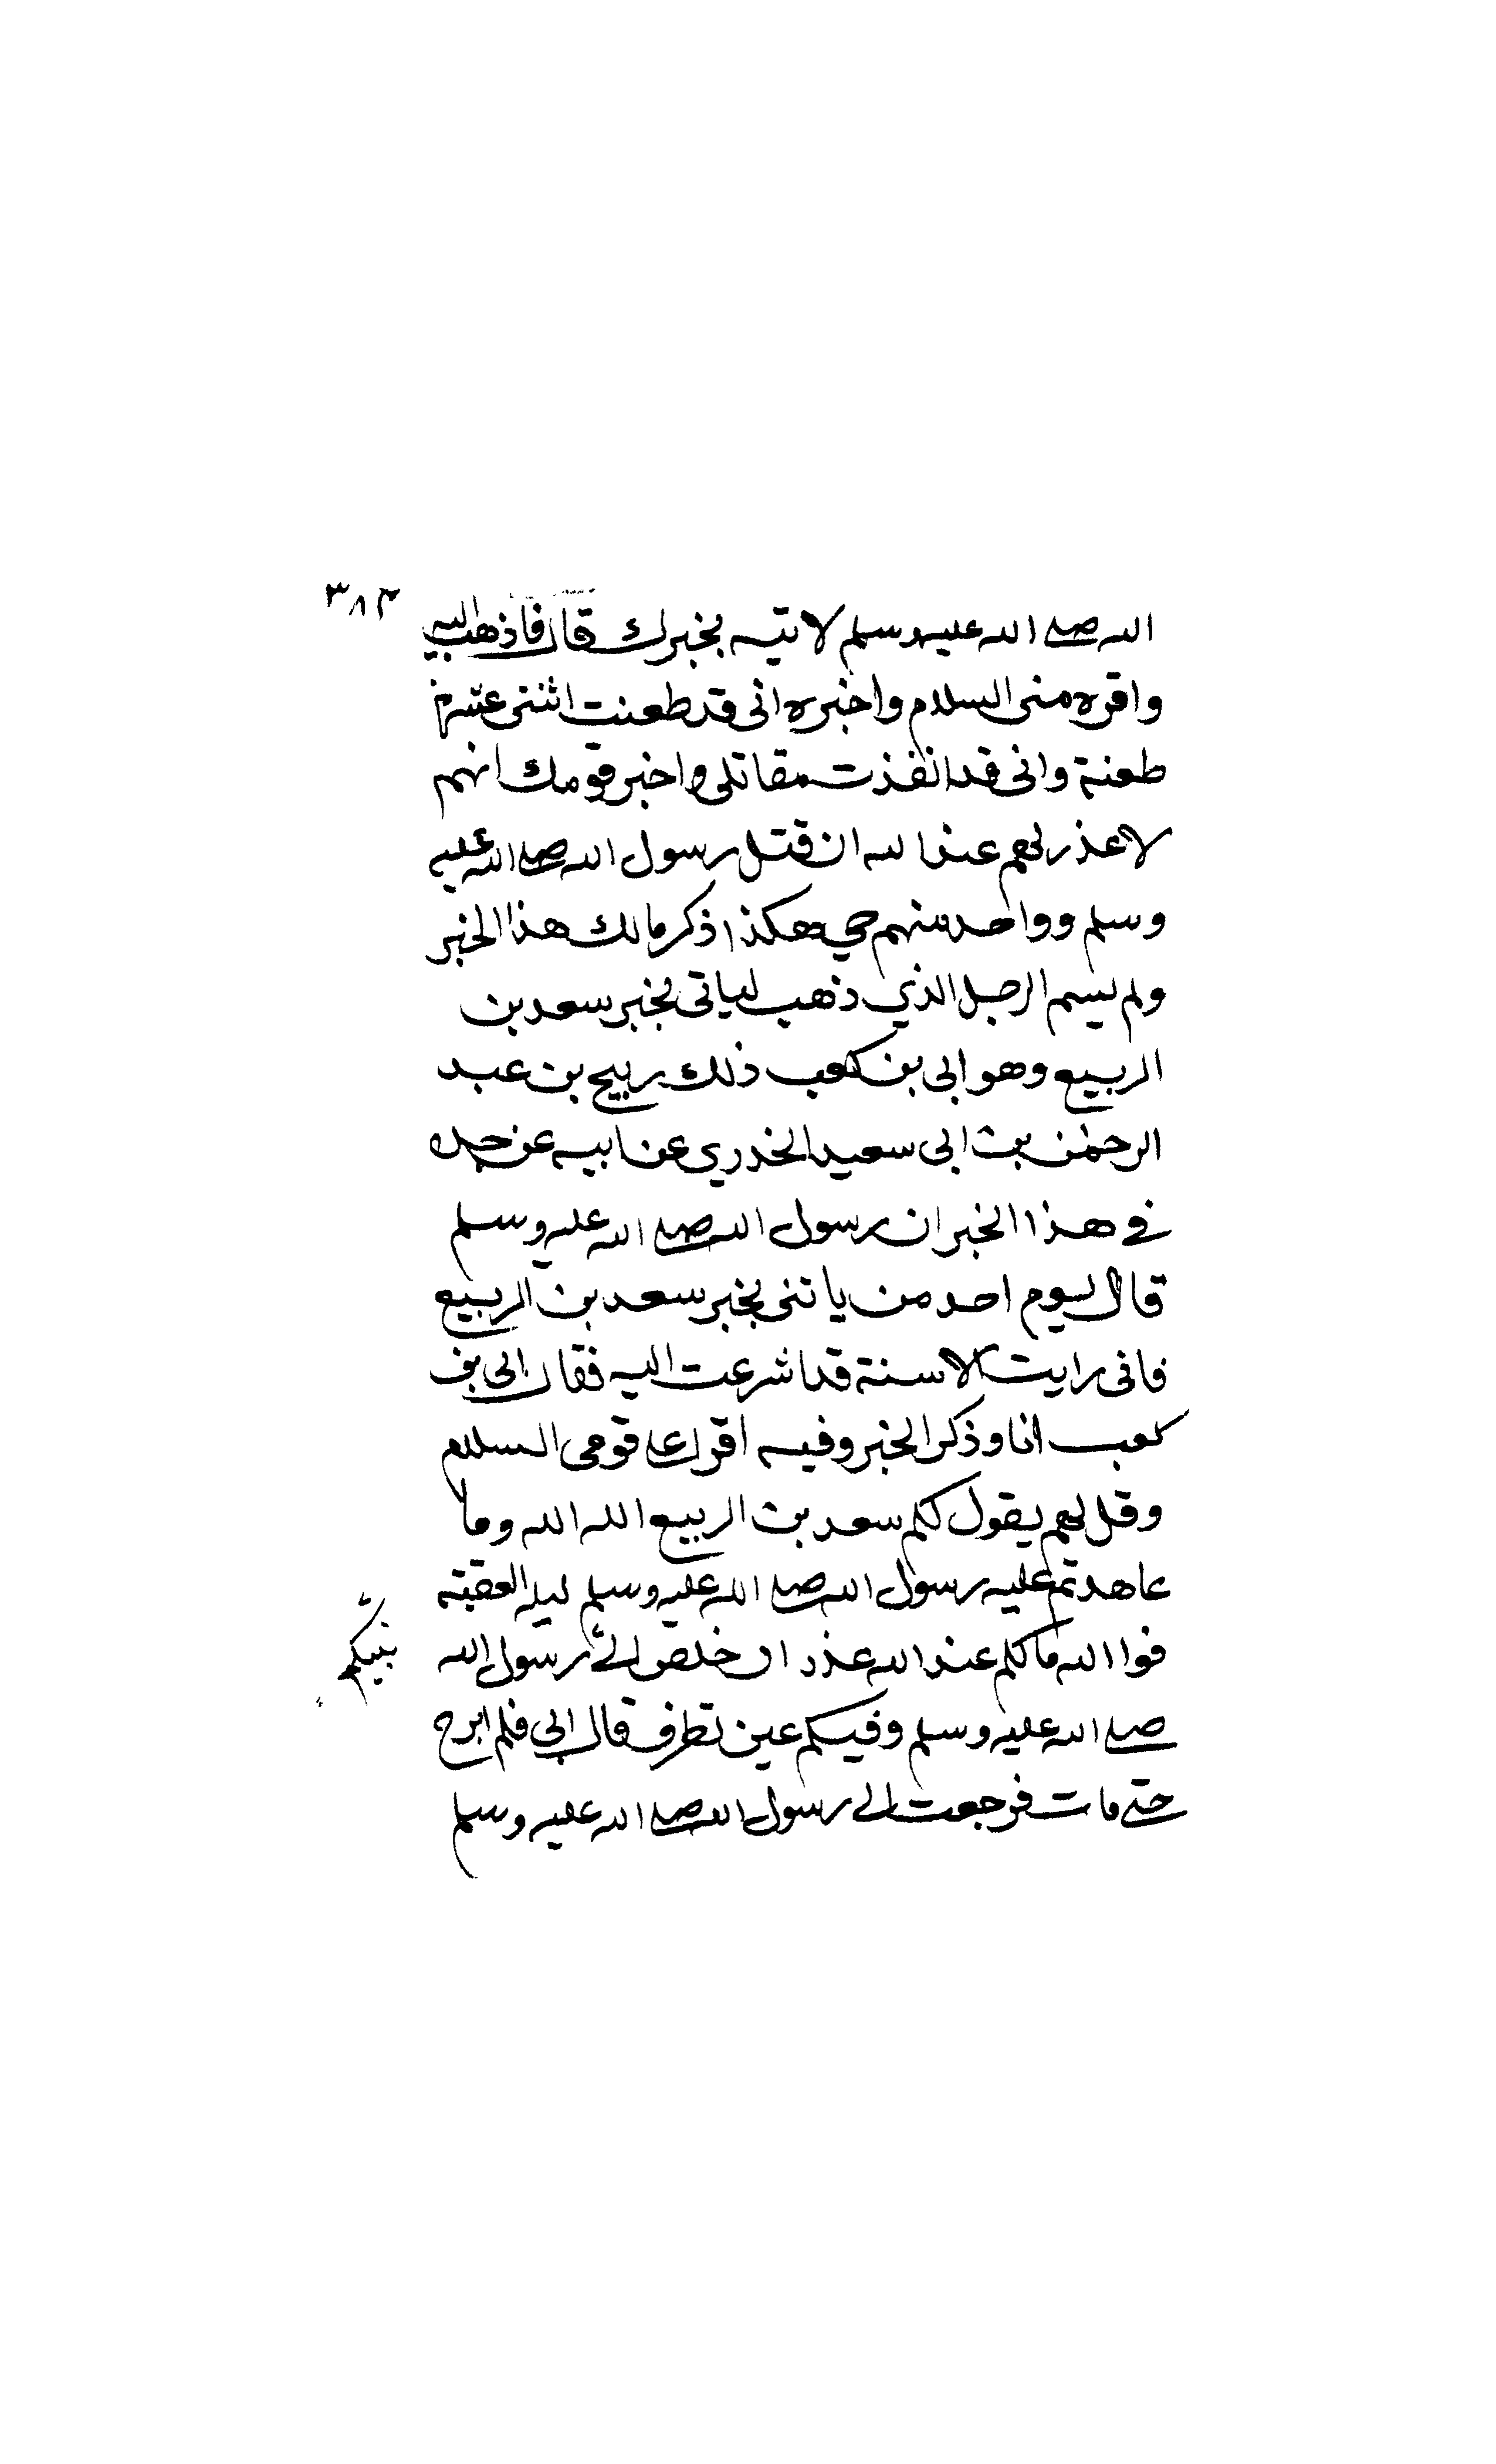 ٣٨٣
الله صلى الله عليه وسلم لاتيه بخبرك قال فاذهب اليه
واقره مني السلام واخبره اني قد طعنت اثنتى عشرة
طعنة واني قد انفذت مقاتلي واخبر قومك انهم
لا عذر لهم عند الله ان قتل رسول الله صلى الله عليه
وسلم وواحد منهم حي هكذا ذكر مالك هذا الخبر
ولم يسم الرجل الذي ذهب لياتى بخبر سعد بن
الربيع وهو ابى بن كعب ذلك ربيح بن عبد
الرحمن بن ابى سعيد الخدري عن ابيه عن جده
في هذا الخبر ان رسول الله صلى الله عليه وسلم
قال يوم احد من ياتنى بخبر سعد بن الربيع
فانى رايت الاسنة قد اشرعت اليه فقال ابى بن
كعب انا وذكر الخبر وفيه اقرا على قومى السلام
وقل لهم يقول لكم سعد بن الربيع الله الله وما
عاهدتم عليه رسول الله صلى الله عليه وسلم ليله العقبة
فوا الله ما لكم عند الله عذر ان خلص الى رسول الله
نبيكم
صلى الله عليه وسلم وفيكم عين تطرف قال ابي فلم ابرح
حتى مات فرجعت الى رسول الله صلى الله عليه وسلم